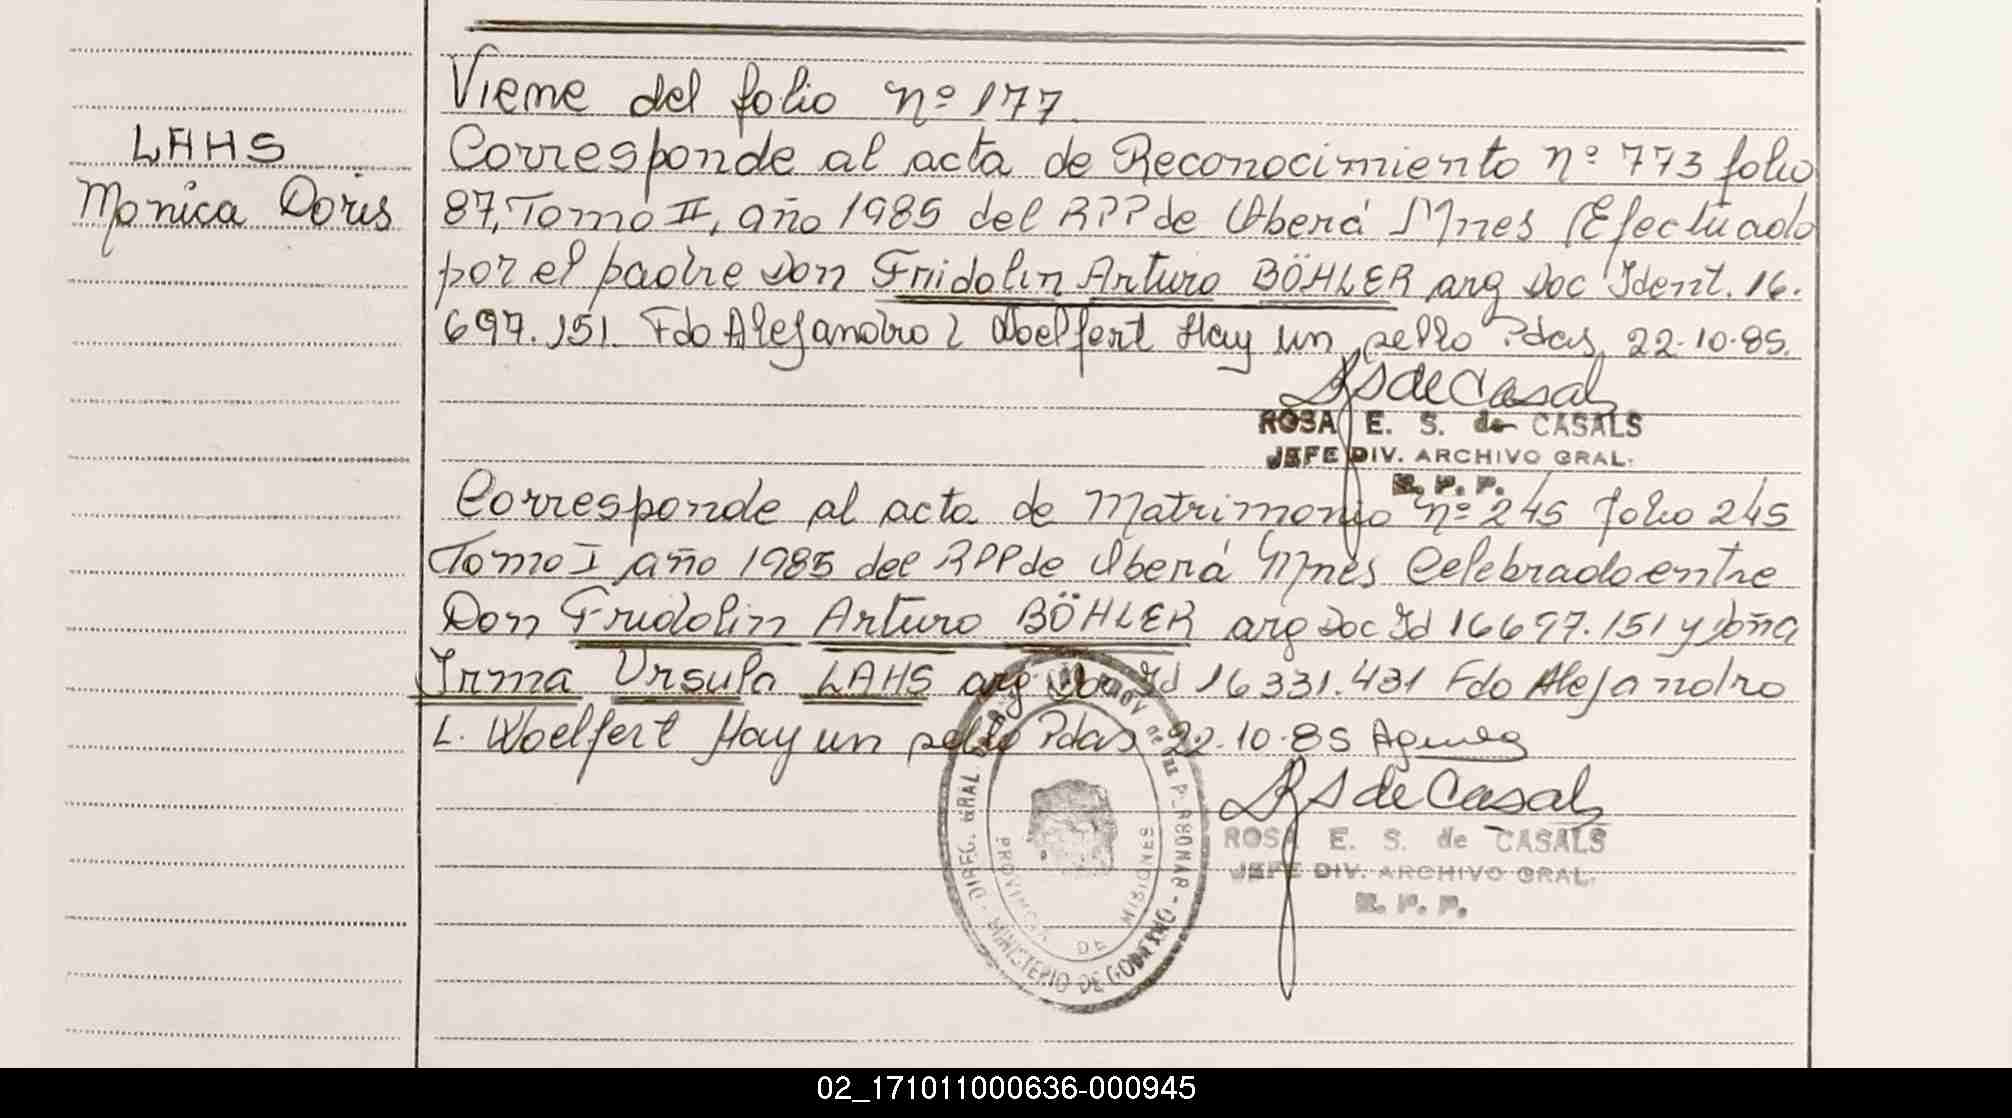 Viene del folio nº 177
LAHS
Monica Doris
Corresponde al acta de Reconocimiento nº 773 folio
87, Tomo II, año 1985 del RPP de Oberá Mnes Efectuado
por el padre Don Fridolin Arturo BÖHLER arg Doc Ident. 16.
697.151. Fdo Alejandro L Woelfert Hay un sello Pdas 22-10-85.
RS de Casals
ROSA E. S. de CASALS
JEFE DIV. ARCHIVO GRAL.
R. P. P.
Corresponde al acta de Matrimonio nº 245 folio 245
Tomo I año 1985 del RPP de Oberá Mnes Celebrado entre
Don Fridolin Arturo BÖHLER arg Doc Id 16697.151 y Doña
Irma Ursula LAHS arg Doc Id 16331.431 Fdo Alejandro
L. Woelfert Hay un sello Pdas 22-10-85
RS de Casals
ROSA E. S. de CASALS
JEFE DIV. ARCHIVO GRAL.
R. P. P.
DIREC. GRAL. PROV. de las PERSONAS
MINISTERIO DE GOBIERNO
PROVINCIA DE MISIONES
02_171011000636-000945